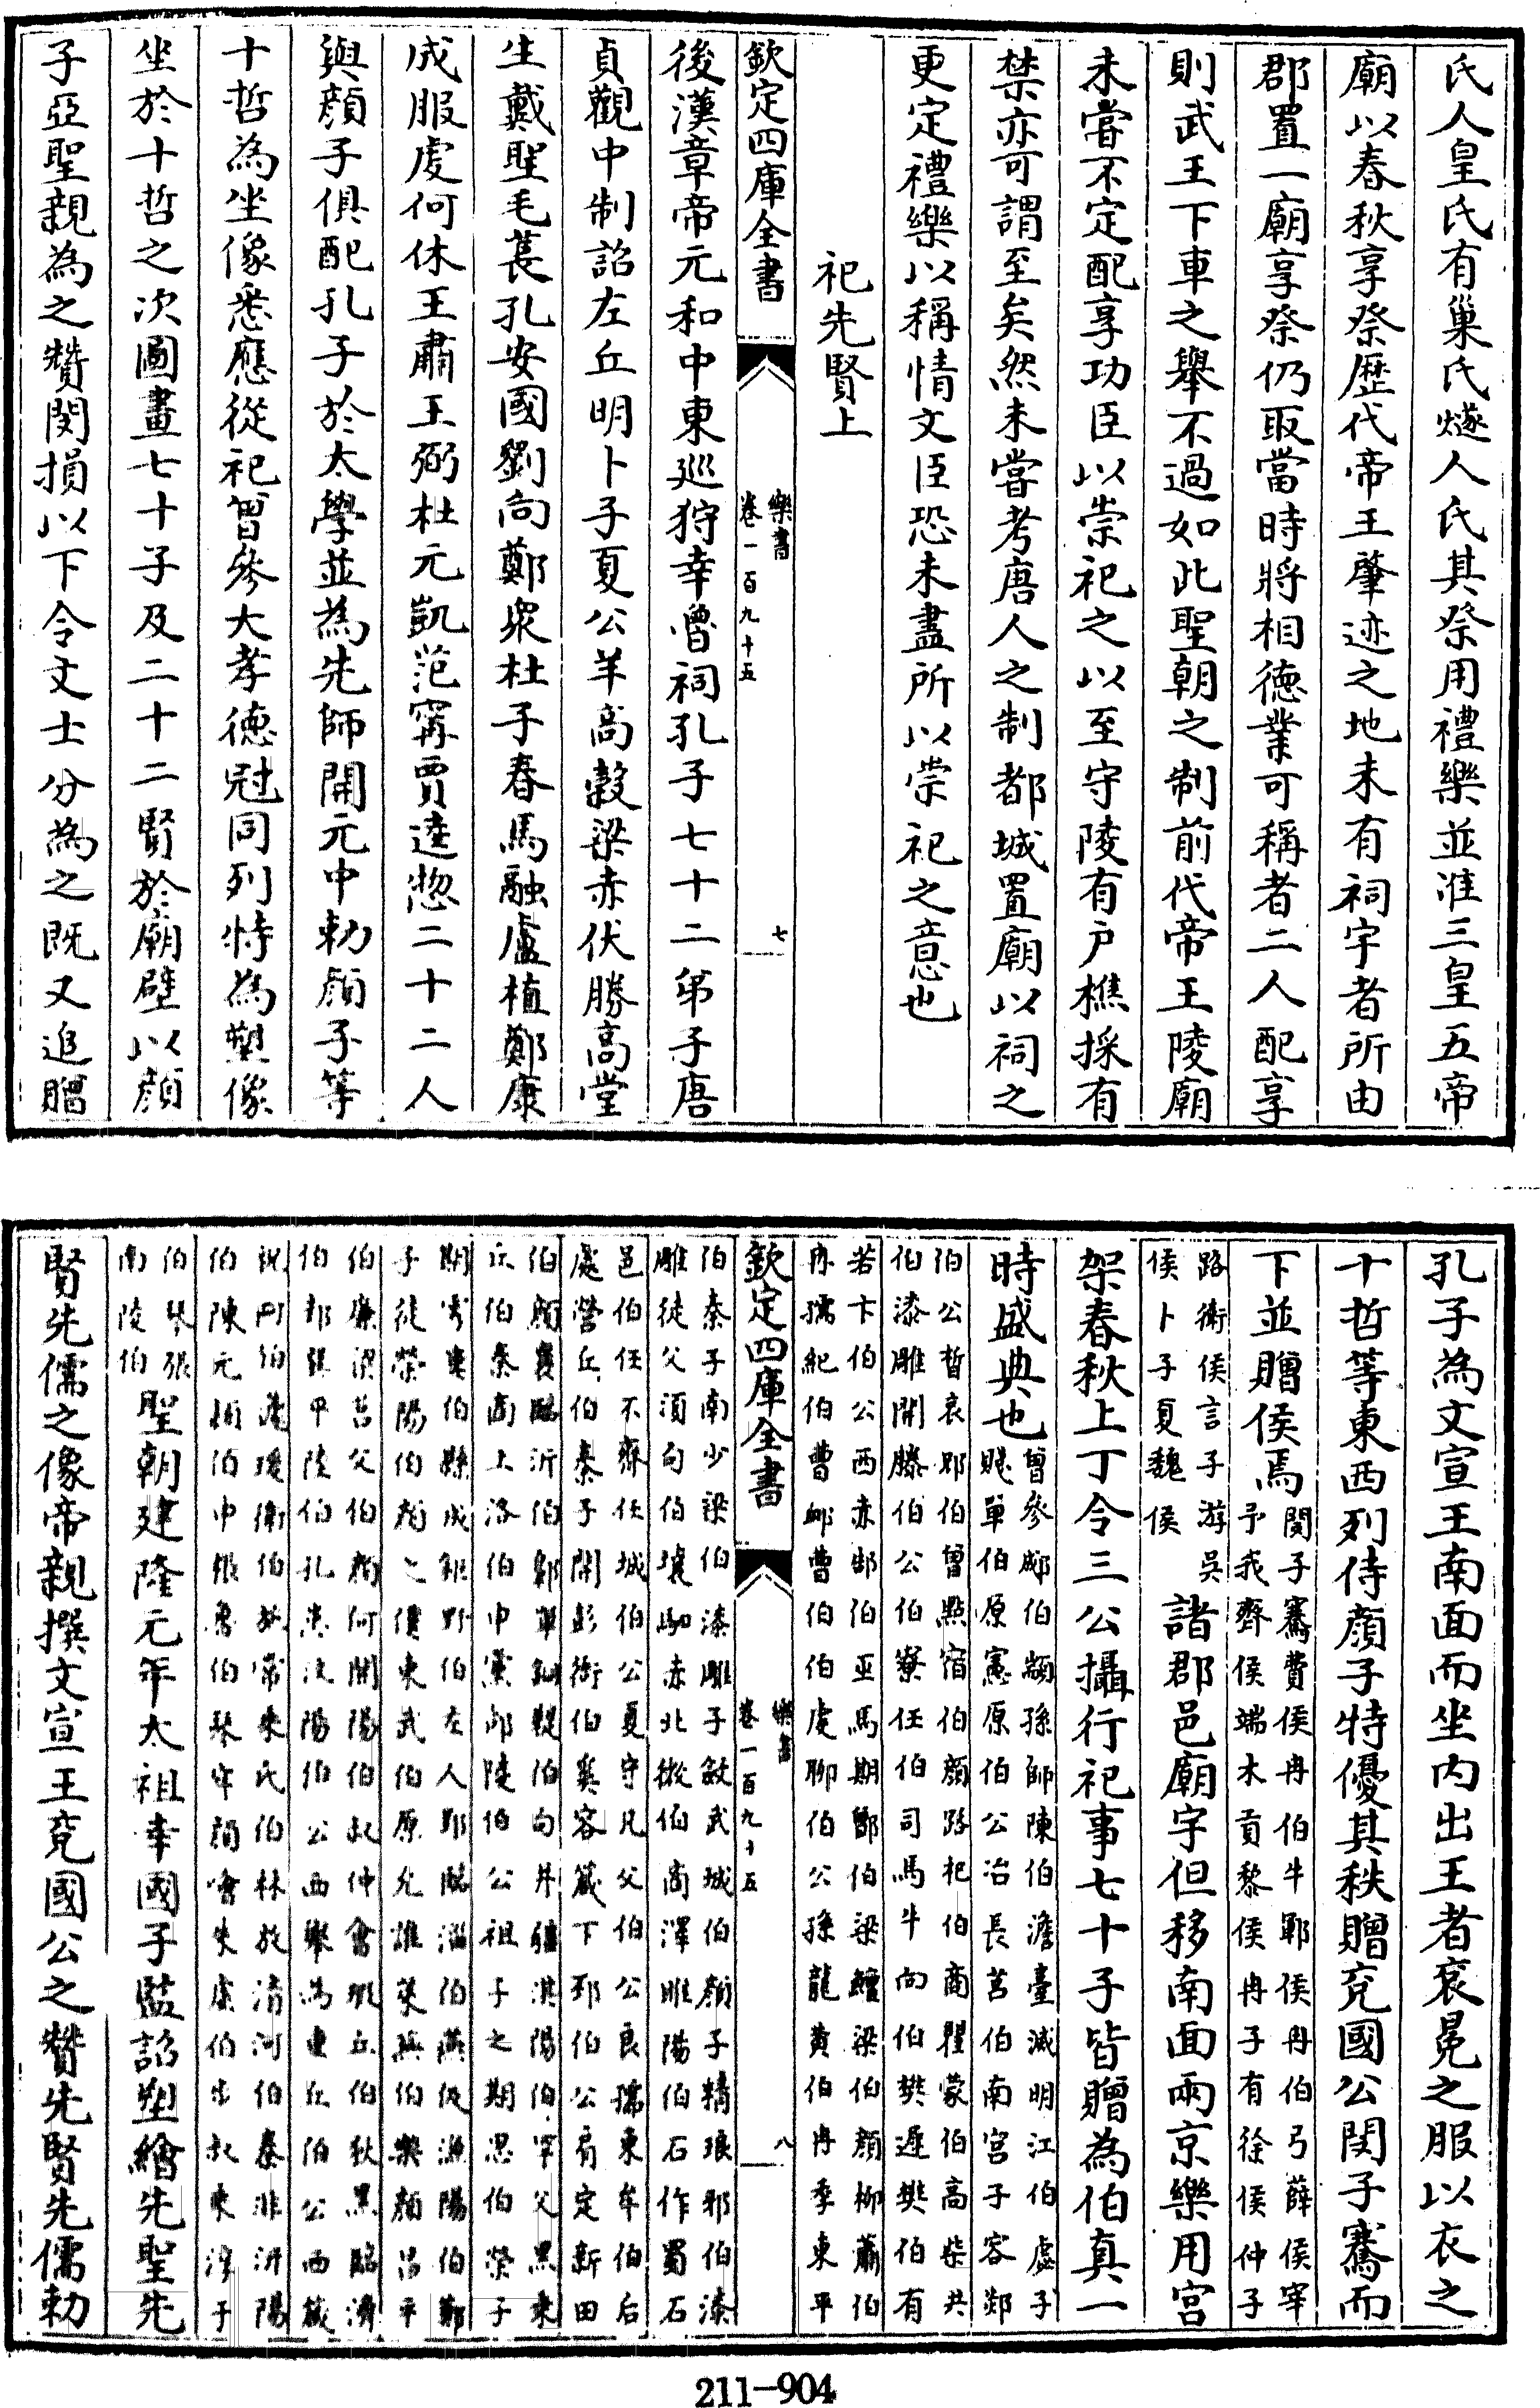 氏人皇氏有巢氏燧人氏其祭用禮樂並准三皇五帝
廟以春秋享祭歴代帝王肇迹之地未有祠宇者所由
郡置一廟享祭仍取當時將相徳業可稱者二人配享
則武王下車之舉不過如此聖朝之制前代帝王陵廟
未嘗不定配享功臣以崇祀之以至守陵有户樵採有
禁亦可謂至矣然未嘗考唐人之制都城置廟以祠之
更定禮樂以稱情文臣恐未盡所以崇祀之意也
祀先賢上
欽定四庫全書
樂書
卷一百九十五
七
後漢章帝元和中東廵狩幸魯祠孔子七十二弟子唐
貞觀中制詔左丘明卜子夏公羊高穀梁赤伏勝高堂
生戴聖毛萇孔安國劉向鄭衆杜子春馬融盧植鄭康
成服䖍何休王肅王弼杜元凱范甯賈逵惣二十二人
與顔子俱配孔子於太學並為先師開元中勅顔子等
十哲為坐像悉應從祀曾參大孝徳冠同列特為塑像
坐於十哲之次圖畫七十子及二十二賢於廟壁以顔
子亞聖親為之贊閔損以下令文士分為之既又追贈
孔子為文宣王南面而坐内出王者衮冕之服以衣之
十哲等東西列侍顔子特優其秩贈兖國公閔子騫而
下並贈侯焉閔子騫費侯冉伯牛鄆侯冉伯弓薛侯宰
予我齊侯端木貢黎侯冉子有徐侯仲子
路衛侯言子游吳
侯卜子夏魏侯
諸郡邑廟宇但移南面兩京樂用宫
架春秋上丁令三公攝行祀事七十子皆贈為伯真一
時盛典也曾參郕伯顓孫師陳伯澹臺滅明江伯虙子
賤單伯原憲原伯公冶長莒伯南宫子容郯
伯公晳哀郳伯曾㸃宿伯顔路杞伯商瞿蒙伯高柴共
伯漆雕開滕伯公伯寮任伯司馬牛向伯樊遲樊伯有
若卞伯公西赤郜伯巫馬期鄫伯梁鱣梁伯顔柳蕭伯
冉孺紀伯曹䘏曹伯伯䖍聊伯公孫龍黄伯冉季東平
欽定四庫全書
樂書
卷一百九十五
八
伯秦子南少梁伯漆雕子斂武城伯顔子精琅邪伯漆
雕徒父須句伯壤駟赤北徴伯商澤睢陽伯石作蜀石
邑伯任不齊任城伯公夏守亢父伯公良孺東牟伯后
處營丘伯秦子開彭衙伯奚容箴下邳伯公肩定新田
伯顔襄臨沂伯鄡單銅鞮伯句井疆淇陽伯罕父黒乗
丘伯秦商上洛伯申黨邵陵伯公祖子之期思伯榮子
期雩婁伯縣成鉅野伯左人郢臨淄伯燕伋漁陽伯鄭
子徒滎陽伯顔之僕東武伯原亢籍萊蕪伯樂顔昌平
伯廉㓗莒父伯顔何開陽伯叔仲會瑕丘伯狄黒臨濟
伯邽巽平陸伯孔忠汶陽伯公西輿如重丘伯公西蒧
祝阿伯蘧瑗衛伯施常乗氏伯林放清河伯秦非汧陽
伯陳亢潁伯申棖魯伯琴牢顔噲朱虚伯步叔乗淳于
伯琴張
南陵伯
聖朝建隆元年太祖幸國子監詔塑繪先聖先
賢先儒之像帝親撰文宣王兖國公之贊先賢先儒勅
211-904